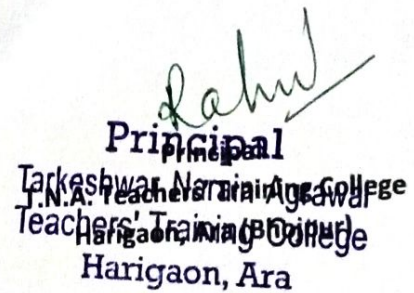 Rahul
Principal
Principal
Tarkeshwar Narain Agrawal
T.N.A. Teachers Training College
Teachers' Training College
Harigaon, Ara (Bhojpur)
Harigaon, Ara